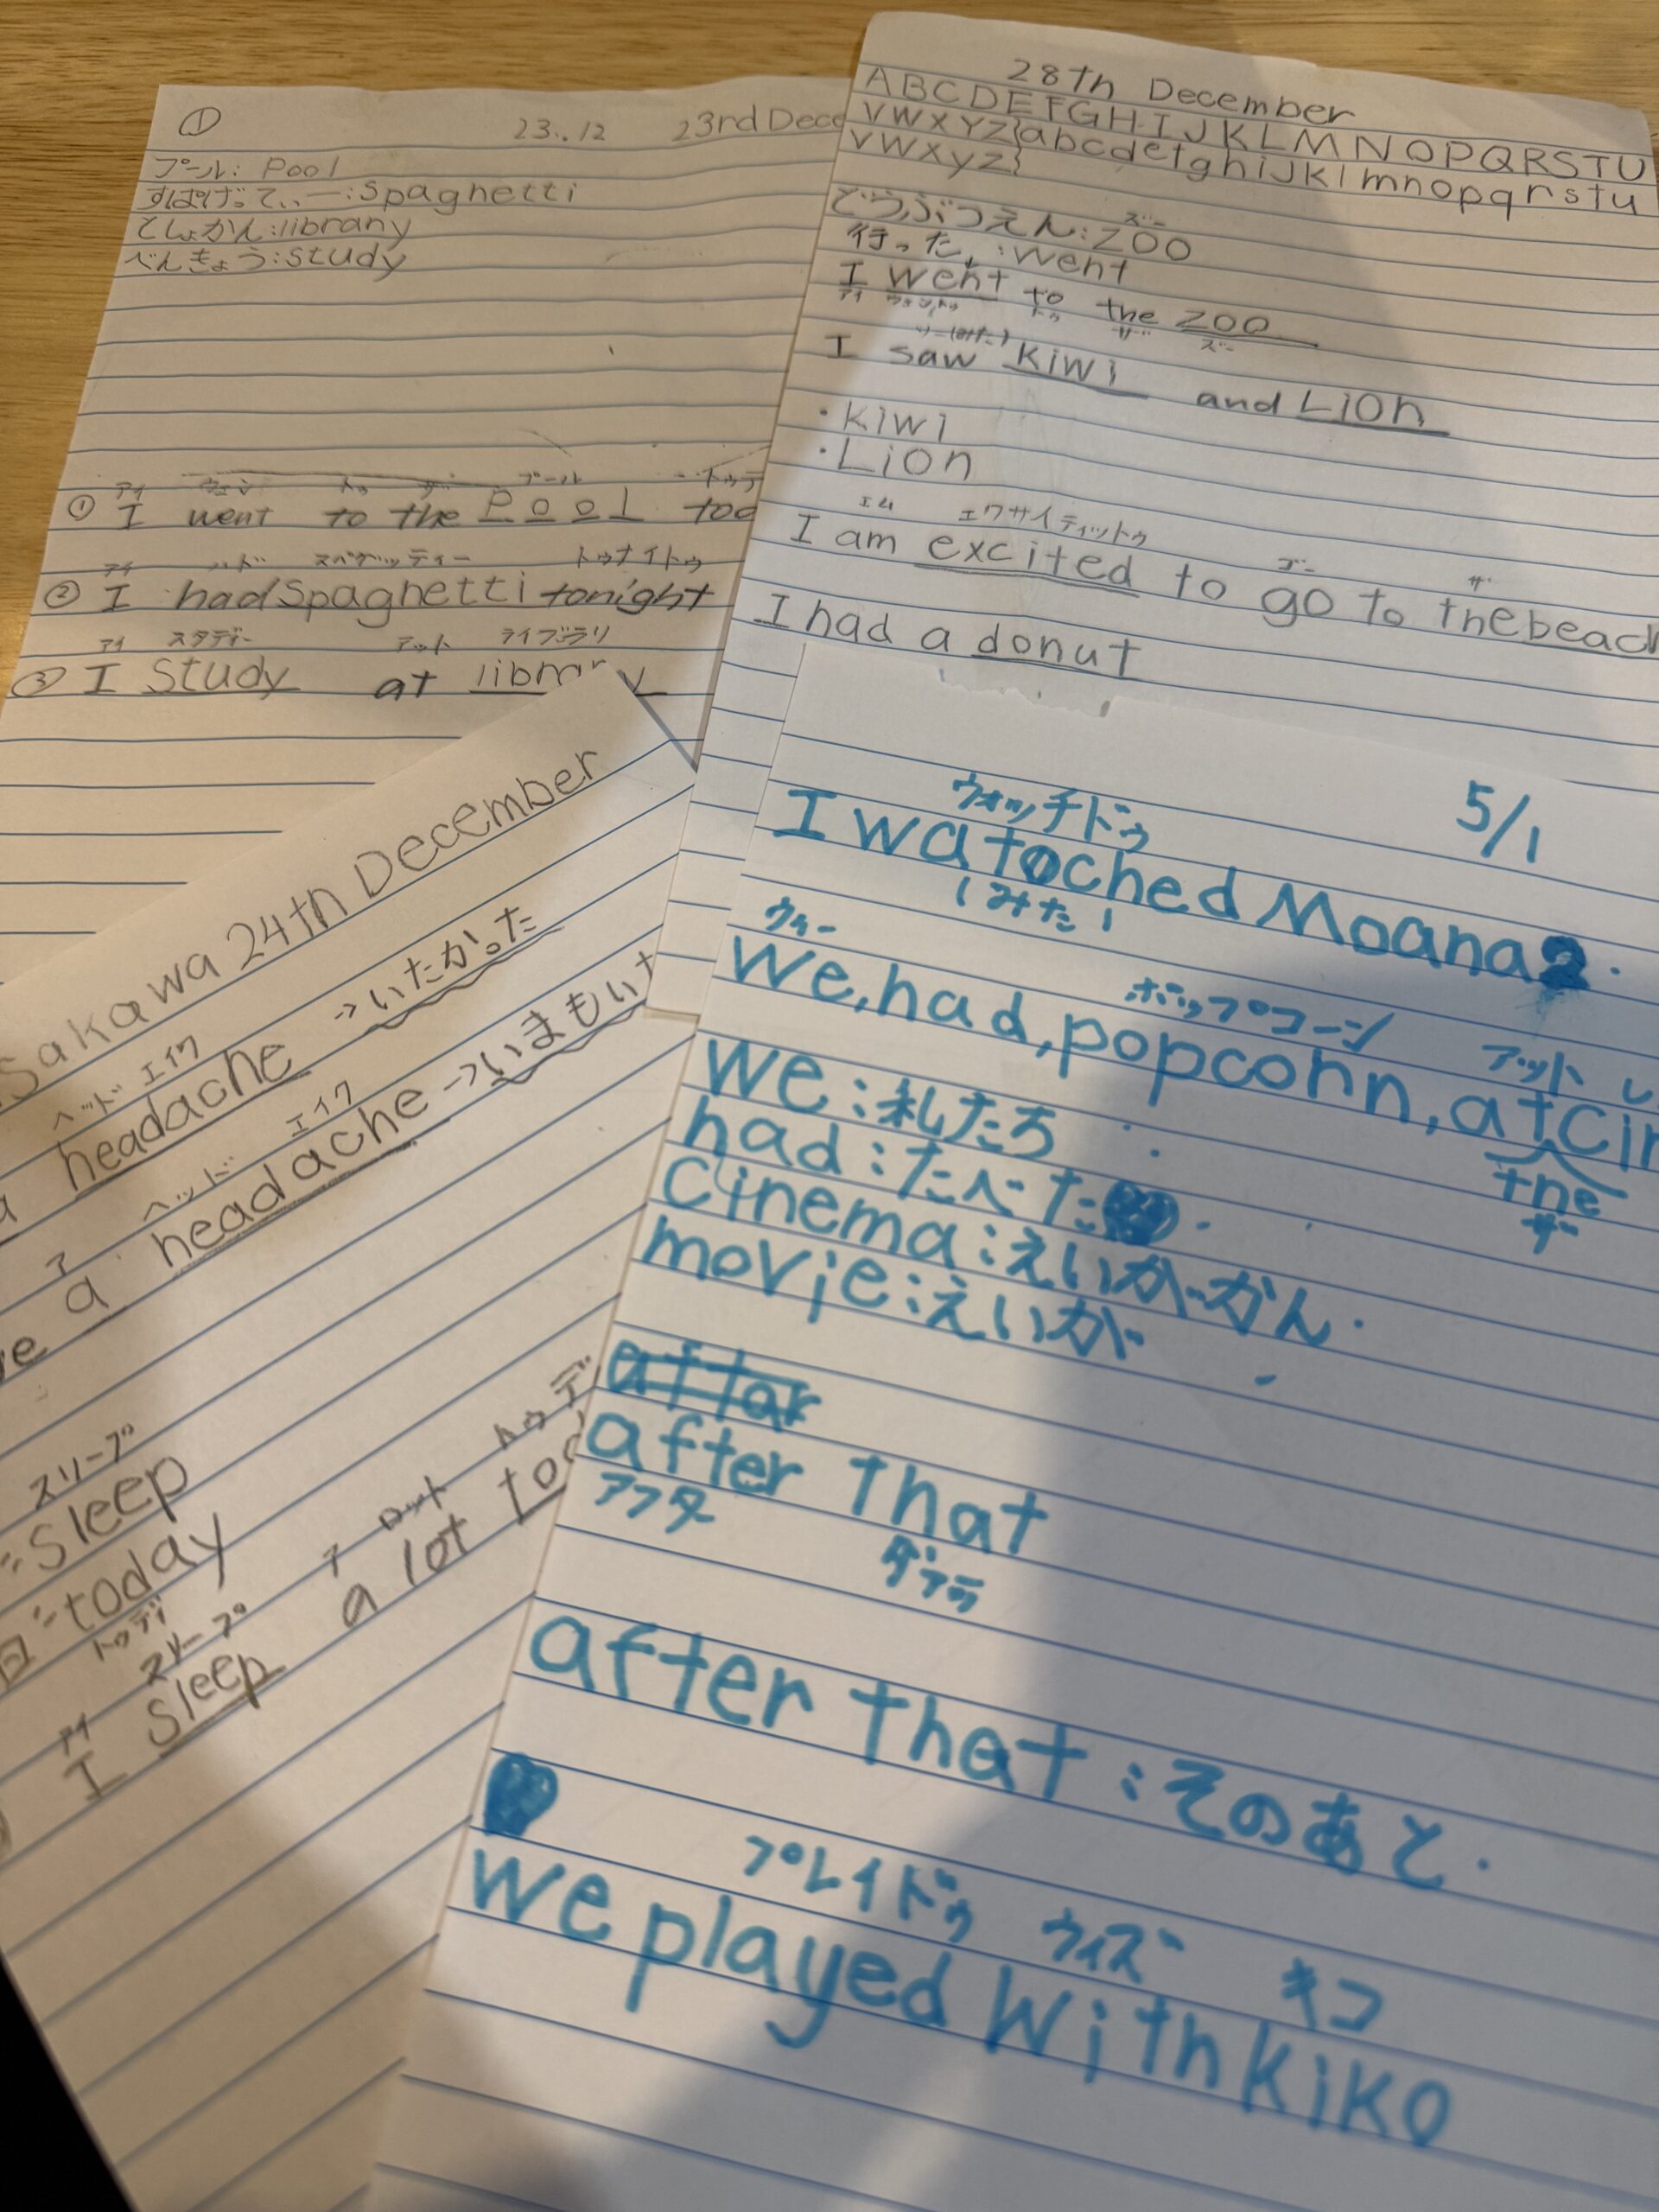 ①
23..12 23rd Dece
プール: Pool
すぱげってぃー:Spaghetti
としょかん:library
べんきょう:study
アイ トゥ ザ プール トゥデ
① I went to the Pool tod
アイ ハド スパゲッティー トゥナイトゥ
② I had Spaghetti tonight
アイ スタディー アット ライブラリ
③ I study at library
28Th December
ABCDEFGHIJKLMNOPQRSTU
VWXYZ{abcdefghijklmnopqrstu
vwxyz}
ズー
どうぶつえん:ZOO
行った:went
I went to the ZOO
アイ ウェントゥ トゥ ザ ズー
ソー(みた)
I saw kiwi and Lion
・kiwi
・Lion
エム エクサイティットゥ ゴー ザ
I am excited to go to the beach
I had a donut
Sakawa 24th December
ヘッド エイク
a headache →いたかった
ア ヘッド エイク
ve a headache →いまもい
スリープ
:Sleep
日:today
トゥデイ
アイ スリープ ア ロット トゥデ
I Sleep a lot tod
5/1
ウォッチドゥ
I watched Moana2.
(みた)
ウィー ポップコーン アット し
We, had, popcorn, at Cin
the
ザ
we:私たち
had:たべた
cinema:えいがかん.
movie:えいが
after that
アフター ダァラ
after that:そのあと.
プレイドゥ ウィズ キコ
we played with kiko